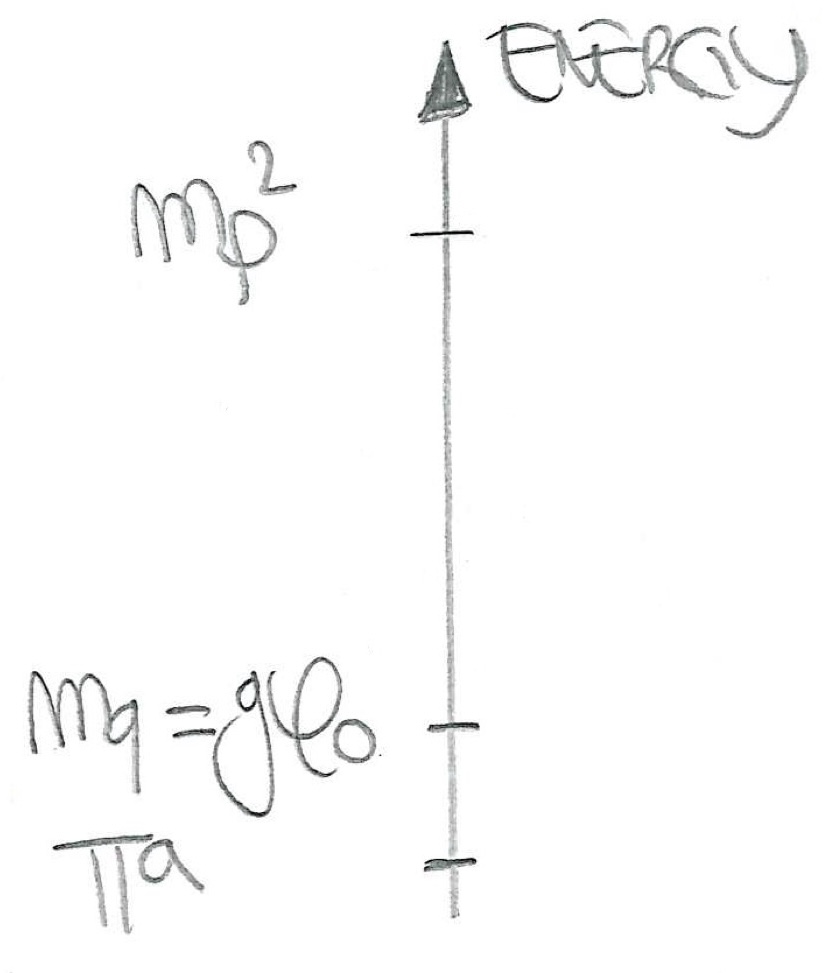 ENERGY
mρ²
mq = gφ₀
πᵃ